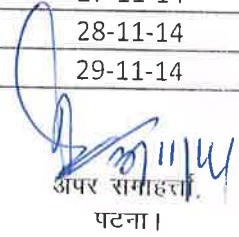 28-11-14
29-11-14
अपर समाहर्त्ता
पटना।